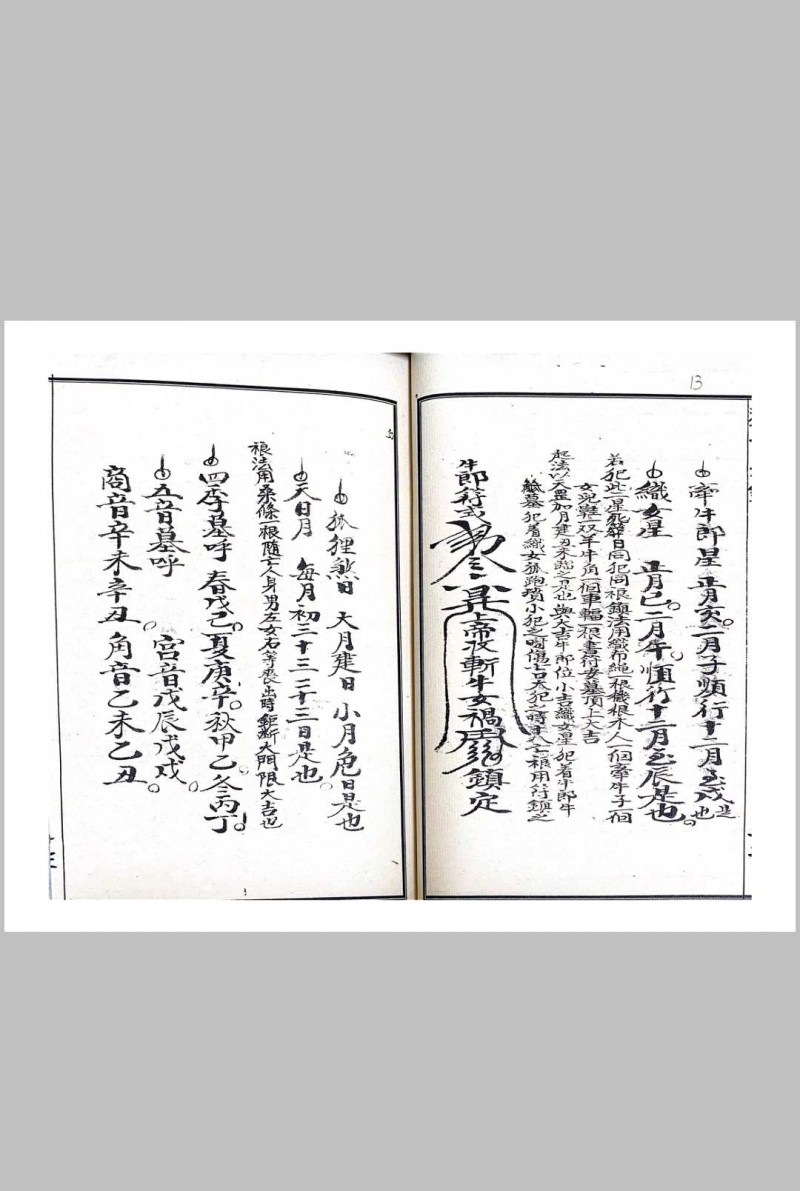 13
牽牛郎星 正月亥二月子順行十二月至戌是也
織女星 正月巳二月午順行十二月至辰是也
若犯此二星死葬日同犯同 鎮法用織布繩一根 木人一個牽牛子一個
女兒 一双羊牛角一個車輻一根書符安墓頂上大吉
起法以天罡加月建丑未臨之是也 與大吉牛郎位小吉織女星犯着牛郎牛
墓犯着織女狐跑 小犯之時傷 大犯之時 人亡 用符鎮之
牛郎符式
上帝攺斬牛女禍
鎮定
狐狸煞日 大月建日小月危日是也
天日月 每月初三十三二十三日是也
法用桑條一根隨亡人身男左女右等丧出時鉅断大門限大吉也
四季墓呼 春戊己夏庚辛秋甲乙冬丙丁
五音墓呼 宮音戊辰戊戌
商音辛未辛丑 角音乙未乙丑